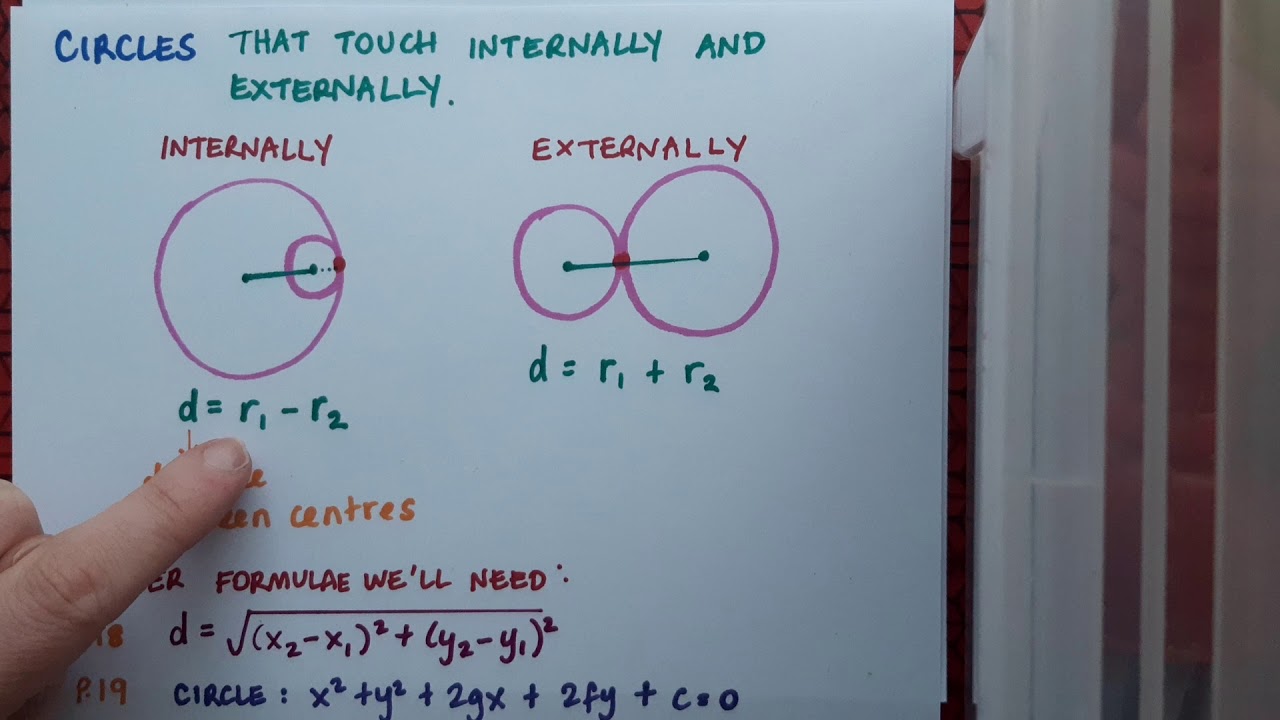 CIRCLES THAT TOUCH INTERNALLY AND
EXTERNALLY.
INTERNALLY
EXTERNALLY
d = r₁ + r₂
d = r₁ - r₂
centres
FORMULAE WE'LL NEED:
d = √(x₂-x₁)² + (y₂-y₁)²
P.19 CIRCLE: x² + y² + 2gx + 2fy + c = 0